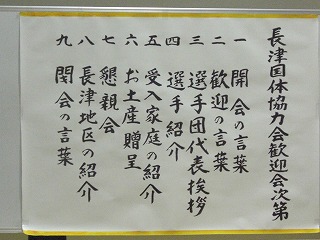 長津国体協力会歓迎会次第
一 開会の言葉
二 歓迎の言葉
三 選手団代表挨拶
四 選手紹介
五 受入家庭の紹介
六 お土産贈呈
七 懇親会
八 長津地区の紹介
九 閉会の言葉